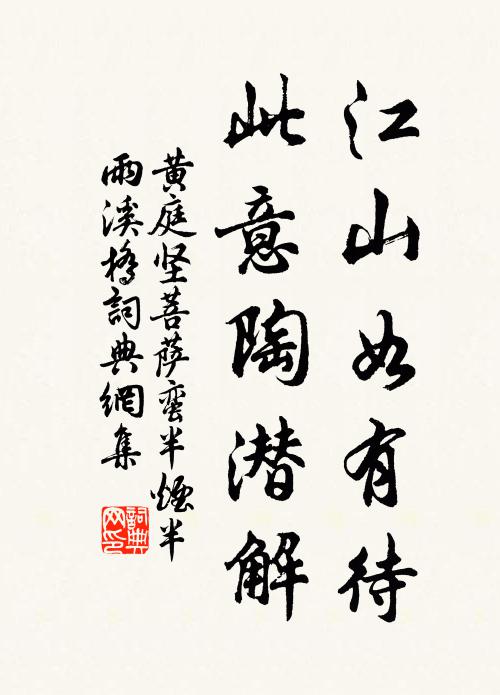 江山如有待
此意陶潜解
黄庭坚菩萨蛮半烟半
雨溪桥詞典網集
詞典网印